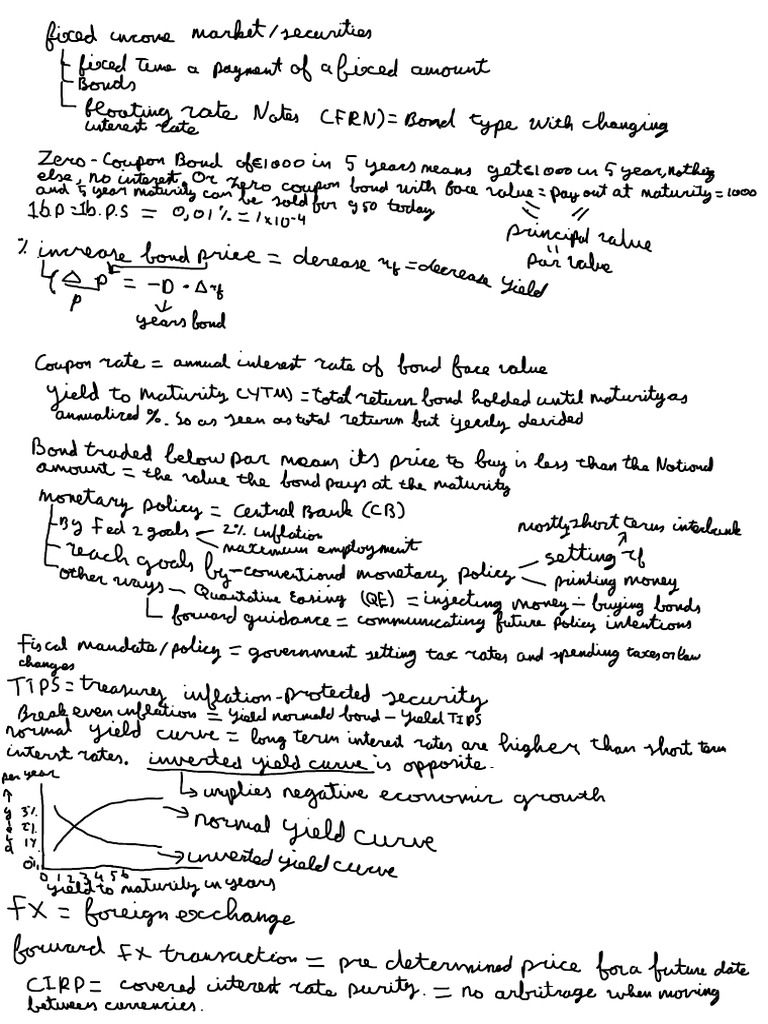 fixed income market/securities
fixed time a payment of a fixed amount
Bonds
floating rate Notes (FRN) = Bond type with changing
interest rate
Zero-Coupon Bond of €1000 in 5 years means get €1000 in 5 year, nothing
else, no interest. Or zero coupon bond with face value = pay out at maturity = 1000
and 5 year maturity can be sold for 950 today
1b.p = 1b.p.s = 0,01% = 1x10^-4
principal value
par value
% increase bond price = derease rf = decrease yield
Δ P / P = -D · Δrf
years bond
Coupon rate = annual interest rate of bond face value
yield to maturity (YTM) = total return bond holded until maturity as
annualized %. So as seen as total return but yearly devided
Bond traded below par means its price to buy is less than the Notional
amount = the value the bond pays at the maturity
monetary policy = Central Bank (CB)
By Fed 2 goals 2% inflation
maximum employment
mostly short term interbank
reach goals by - conventional monetary policy setting rf
printing money
other ways - Quantative Easing (QE) = injecting money - buying bonds
forward guidance = communicating future policy intentions
Fiscal mandate/policy = government setting tax rates and spending taxes or law
changes
TIPS = treasury inflation-protected security
Break even inflation = yield normald bond - yield TIPS
normal yield curve = long term interest rates are higher than short term
interst rates. inverted yield curve is opposite.
implies negative economic growth
per year
3%
2%
1%
0%
normal yield curve
inverted yield curve
0 1 2 3 4 5 6
yield to maturity in years
FX = foreign exchange
forward FX transaction = pre determined price for a future date
CIRP = covered interest rate purity. = no arbitrage when moving
between currencies.